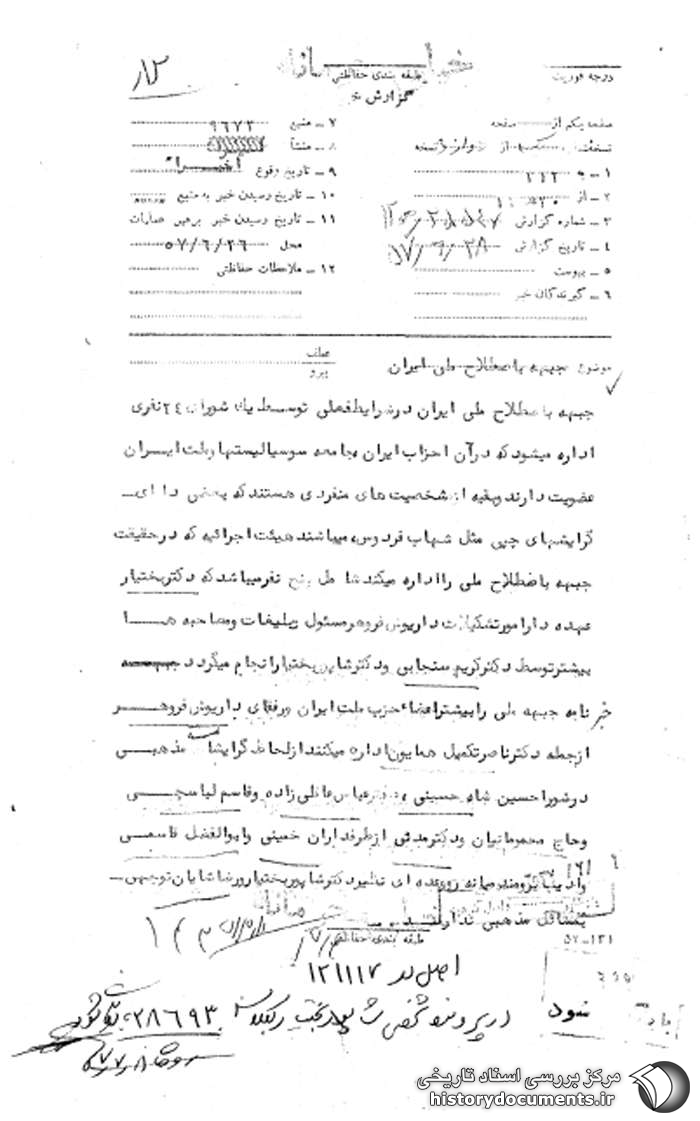 درجه فوریت
طبقه بندی حفاظتی
گزارش خبر
صفحه یکم از صفحه
نسخه از نسخه
۱ ـ به ۳۲۲
۲ ـ از
۳ ـ شماره گزارش
۴ ـ تاریخ گزارش
۵ ـ پیوست
۶ ـ گیرندگان خبر
۷ ـ منبع ۹۶۷۲
۸ ـ منشأ
۹ ـ تاریخ وقوع اخیرا"
۱۰ ـ تاریخ رسیدن خبر به منبع
۱۱ ـ تاریخ رسیدن خبر برهبر عملیات
محل ۵۷/۶/۲۶
۱۲ ـ ملاحظات حفاظتی
موضوع جبهه باصطلاح ملی ایران
عطف
پیرو
جبهه باصطلاح ملی ایران درشرایط فعلی توسط یک شورای ۲۴ نفری
اداره میشود که درآن احزاب ایران جامعه سوسیالیستها وملت ایــران
عضویت دارند وبقیه از شخصیت های منفردی هستند که بعضی دا ای ـ
گرایشهای چپی مثل شهاب فردوس میباشند هیئت اجرائیه که درحقیقت
جبهه باصطلاح ملی را اداره میکند شا مل پنج نفر میباشد که دکتر بختیار
عهده دار امور تشکیلات داریوش فروهر مسئول تبلیغات ومصاحبه هــا
بیشتر توسط دکتر کریم سنجابی ودکتر شاپور بختیار انجام میگردد
خبر نامه جبهه ملی را بیشتر اعضاء حزب ملت ایران ورفقای داریوش فروهــر
ازجمله دکتر ناصر تکمیل همایون اداره میکنند از لحاظ گرایشات مذهبــی
درشورا حسین شاه حسینی ودکتر عباس عاقلی زاده وقاسم لباسچــی
وحاج محمود مانیان ودکتر مدنی از طرفداران خمینی وابوالفضل قاسمــی
وادیب برومند میانه رو وعده ای نظیر دکتر شاپور بختیار ورضا شایان توجهی ـ
بمسائل مذهبی ندارنــد
طبقه بندی حفاظتی
۵۲-۱۳۱
اصل در ۱۲۱۱۱۷
در پرونده شخصی شاپور بختیار بکلاسه ۲۸۶۹۳
شود
مرکز بررسی اسناد تاریخی
historydocuments.ir